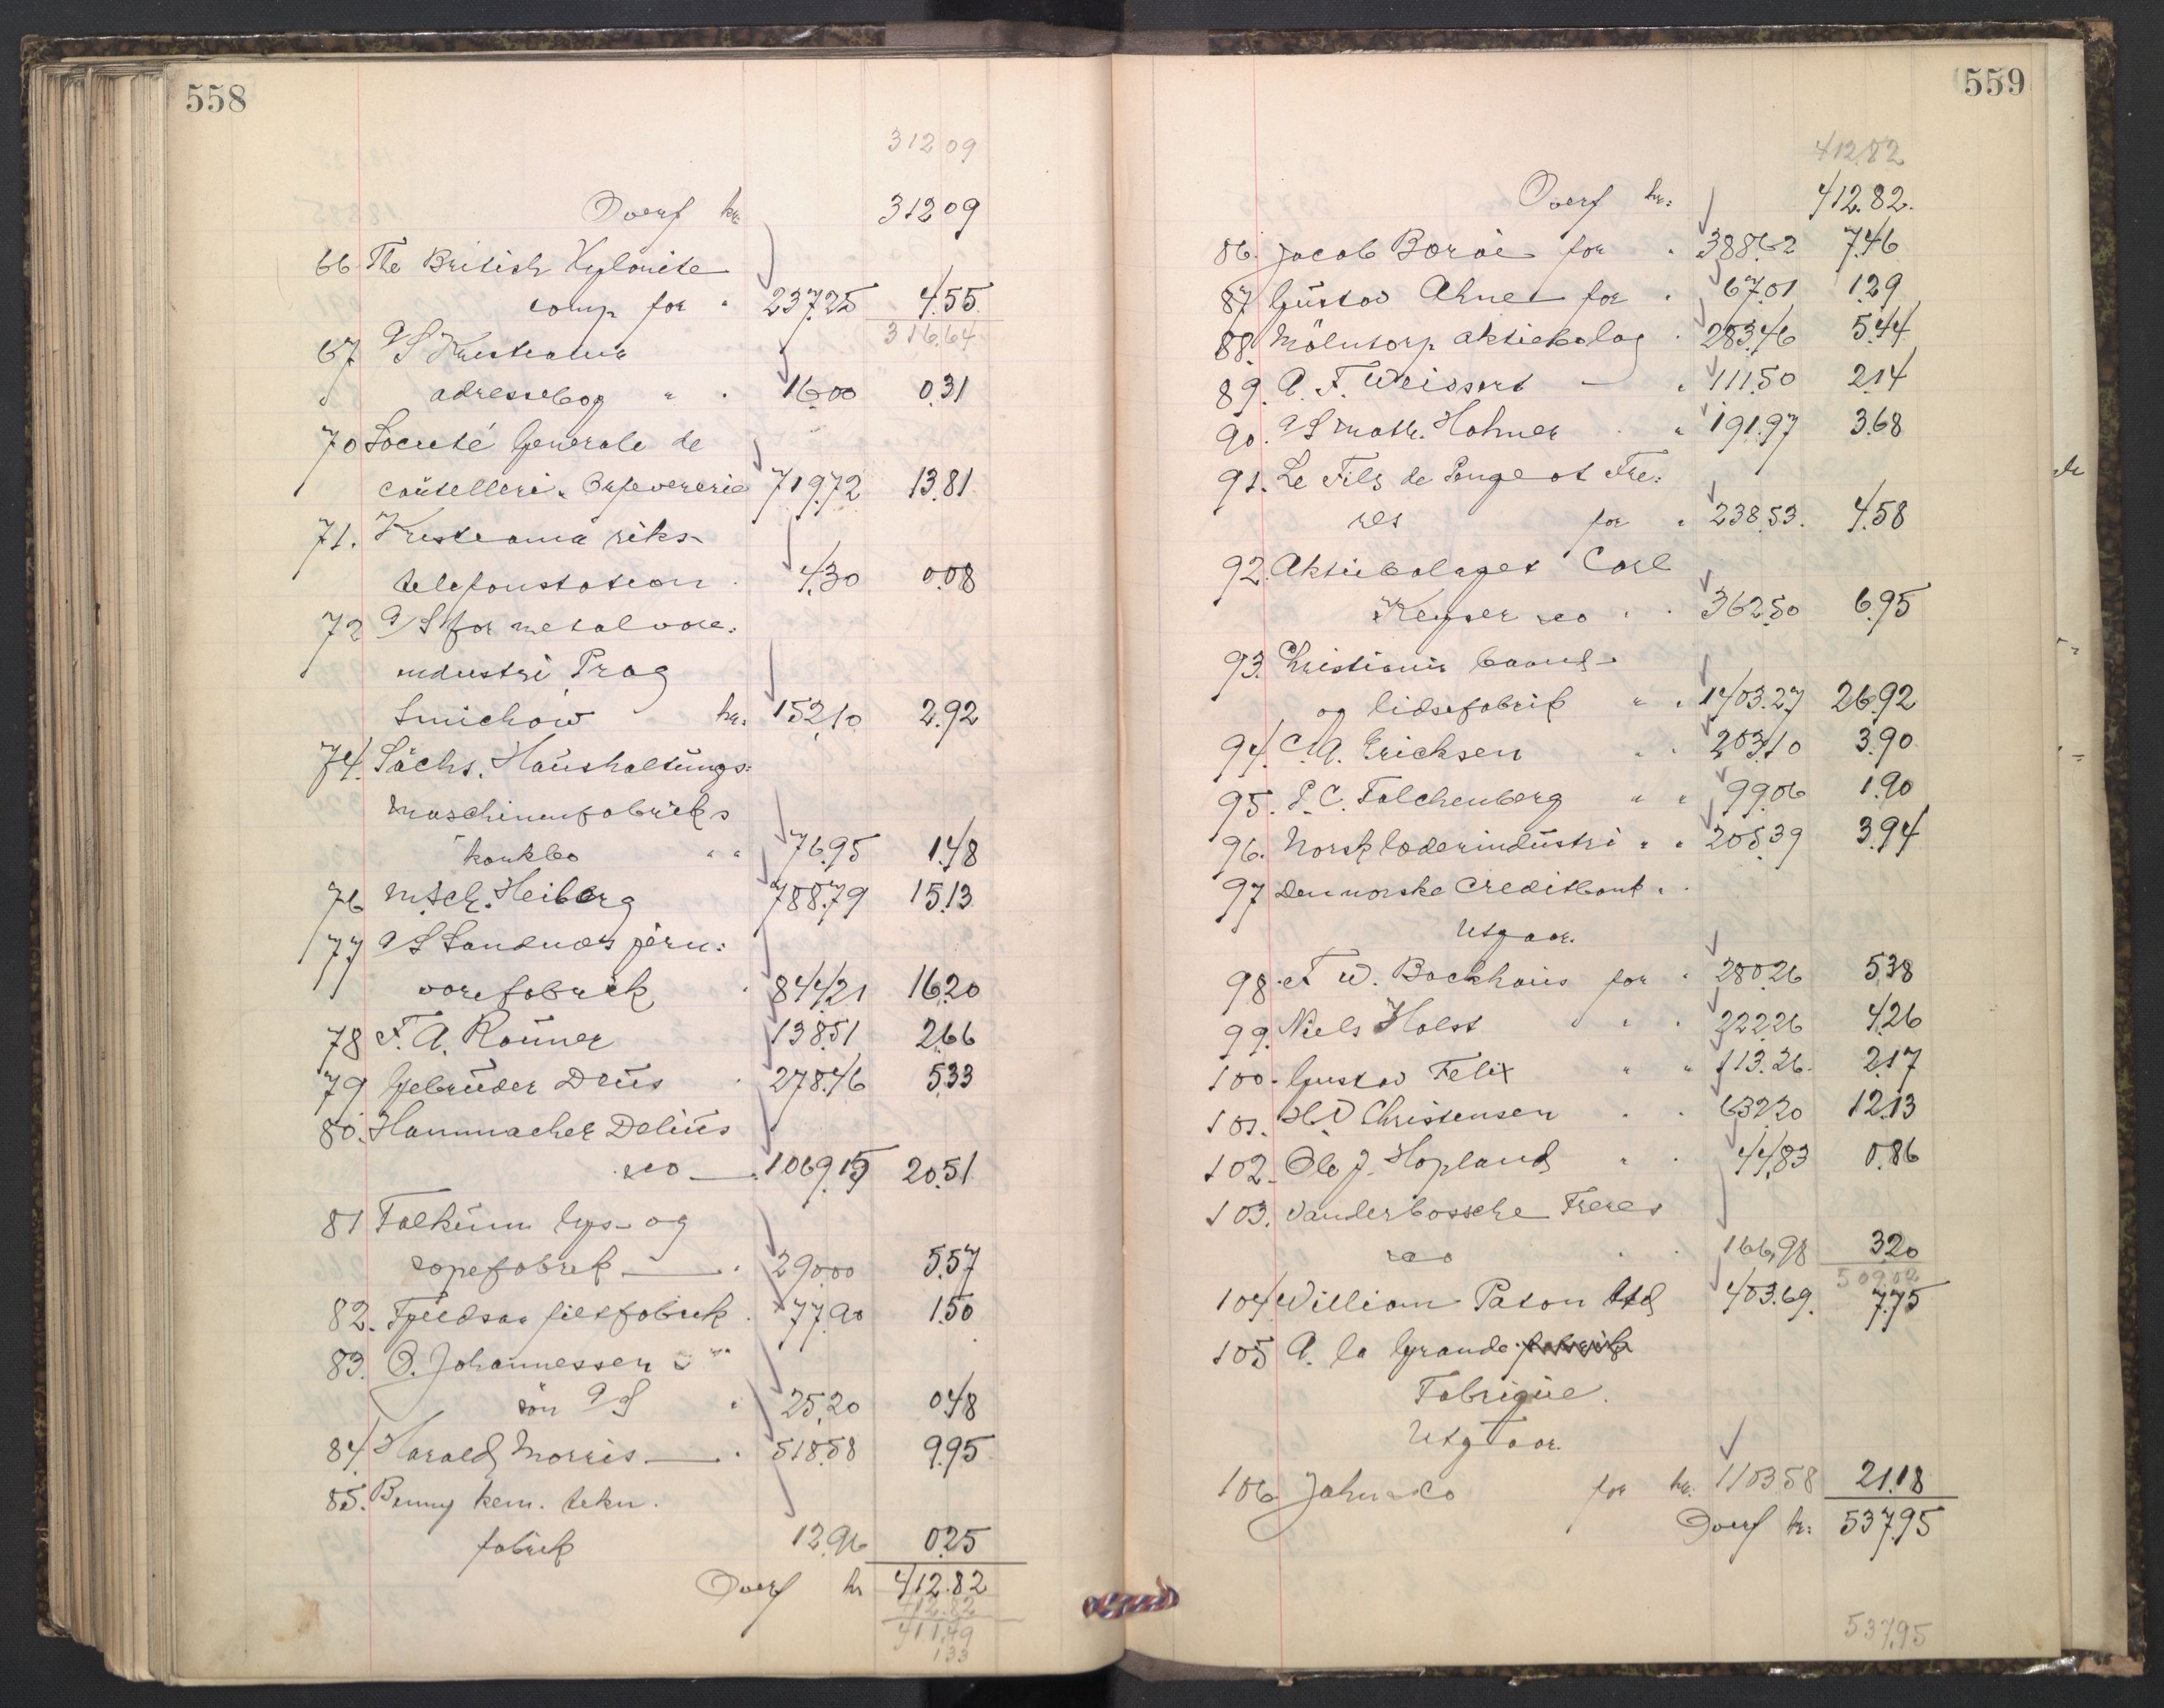 558
312 09
Overf kr. 312 09
66 The British Xylonite
comp for " 237,25 4.55
316.64
67 A/S Kristiania
adressebog " . 16,00 0.31
70 Societé Generale de
coutelleri & Orfevererie 719,72 13.81
71. Kristiania riks-
telefonstation . 4,30 0.08
72 A/S for metalvare:
industri Prag
Smichow kr. 152,10 2.92
74. Sächs. Haushaltungs:
maschinenfabriks
konkbo " " 76,95 1.48
76 M. Sch. Heiberg 788,79 15.13
77 A/S Sandnes jern:
varefabrik . 844,21 16.20
78 F. A. Rauner 138,51 2.66
79 Gebrüder Deus . 278,46 5.33
80. Hammacher Delius
& co — . 1069,15 20.51
81 Falkum lys- og
sæpefabrik — . 290,00 5.57
82. Fjeldsaa filefabrik . 77,90 1.50
83. O. Johannessen &
sön A/S " 25,20 0.48
84. Harald Morris — . 518,58 9.95
85. Benny kem. tekn.
fabrik 12,96 0.25
Overf kr 412.82
412.82
411,49
1 33
559
412.82
Overf kr: 412.82.
86. Jacob Boröe for . 388,62 7.46
87 Gustav Ahne for . 67,01 1.29
88. Mölntorp aktiebolag . 283,46 5.44
89. A. F. Weissert — " 111,50 2.14
90. A/S Math. Hohner . " 191.97 3.68
91. Le Fils de Peugeot Fre:
res for " 238.53. 4.58
92. Aktiebolaget Carl
Keyser & co . . 362,50 6.95
93. Christiania baand-
og lidsefabrik " . 1403.27 26.92
94. C. A. Ericksen " . 203,10 3.90
95. P. C. Falchenberg " " 99,06 1.90
96. Norsk læderindustri " . 205,39 3.94
97 Den norske Creditbank . .
Utgaar.
98. F W. Backhaus for . 280,26 5.38
99. Niels Holst " . 222,26 4.26
100. Gustav Felix " " 113.26. 2.17
101. H. D Christensen . . 632,20 12.13
102. Ole J. Hopland " . 44,83 0.86
103. Vanderbossche Freres
& co . . 166,98 3.20
509.02
104. William Paton Ltd 403.69. 7.75
105 A. la Grande fabrik
Fabrique.
Utgaar.
106 John & Co for kr. 1103,58 21.18
Overf kr: 537.95
537.95